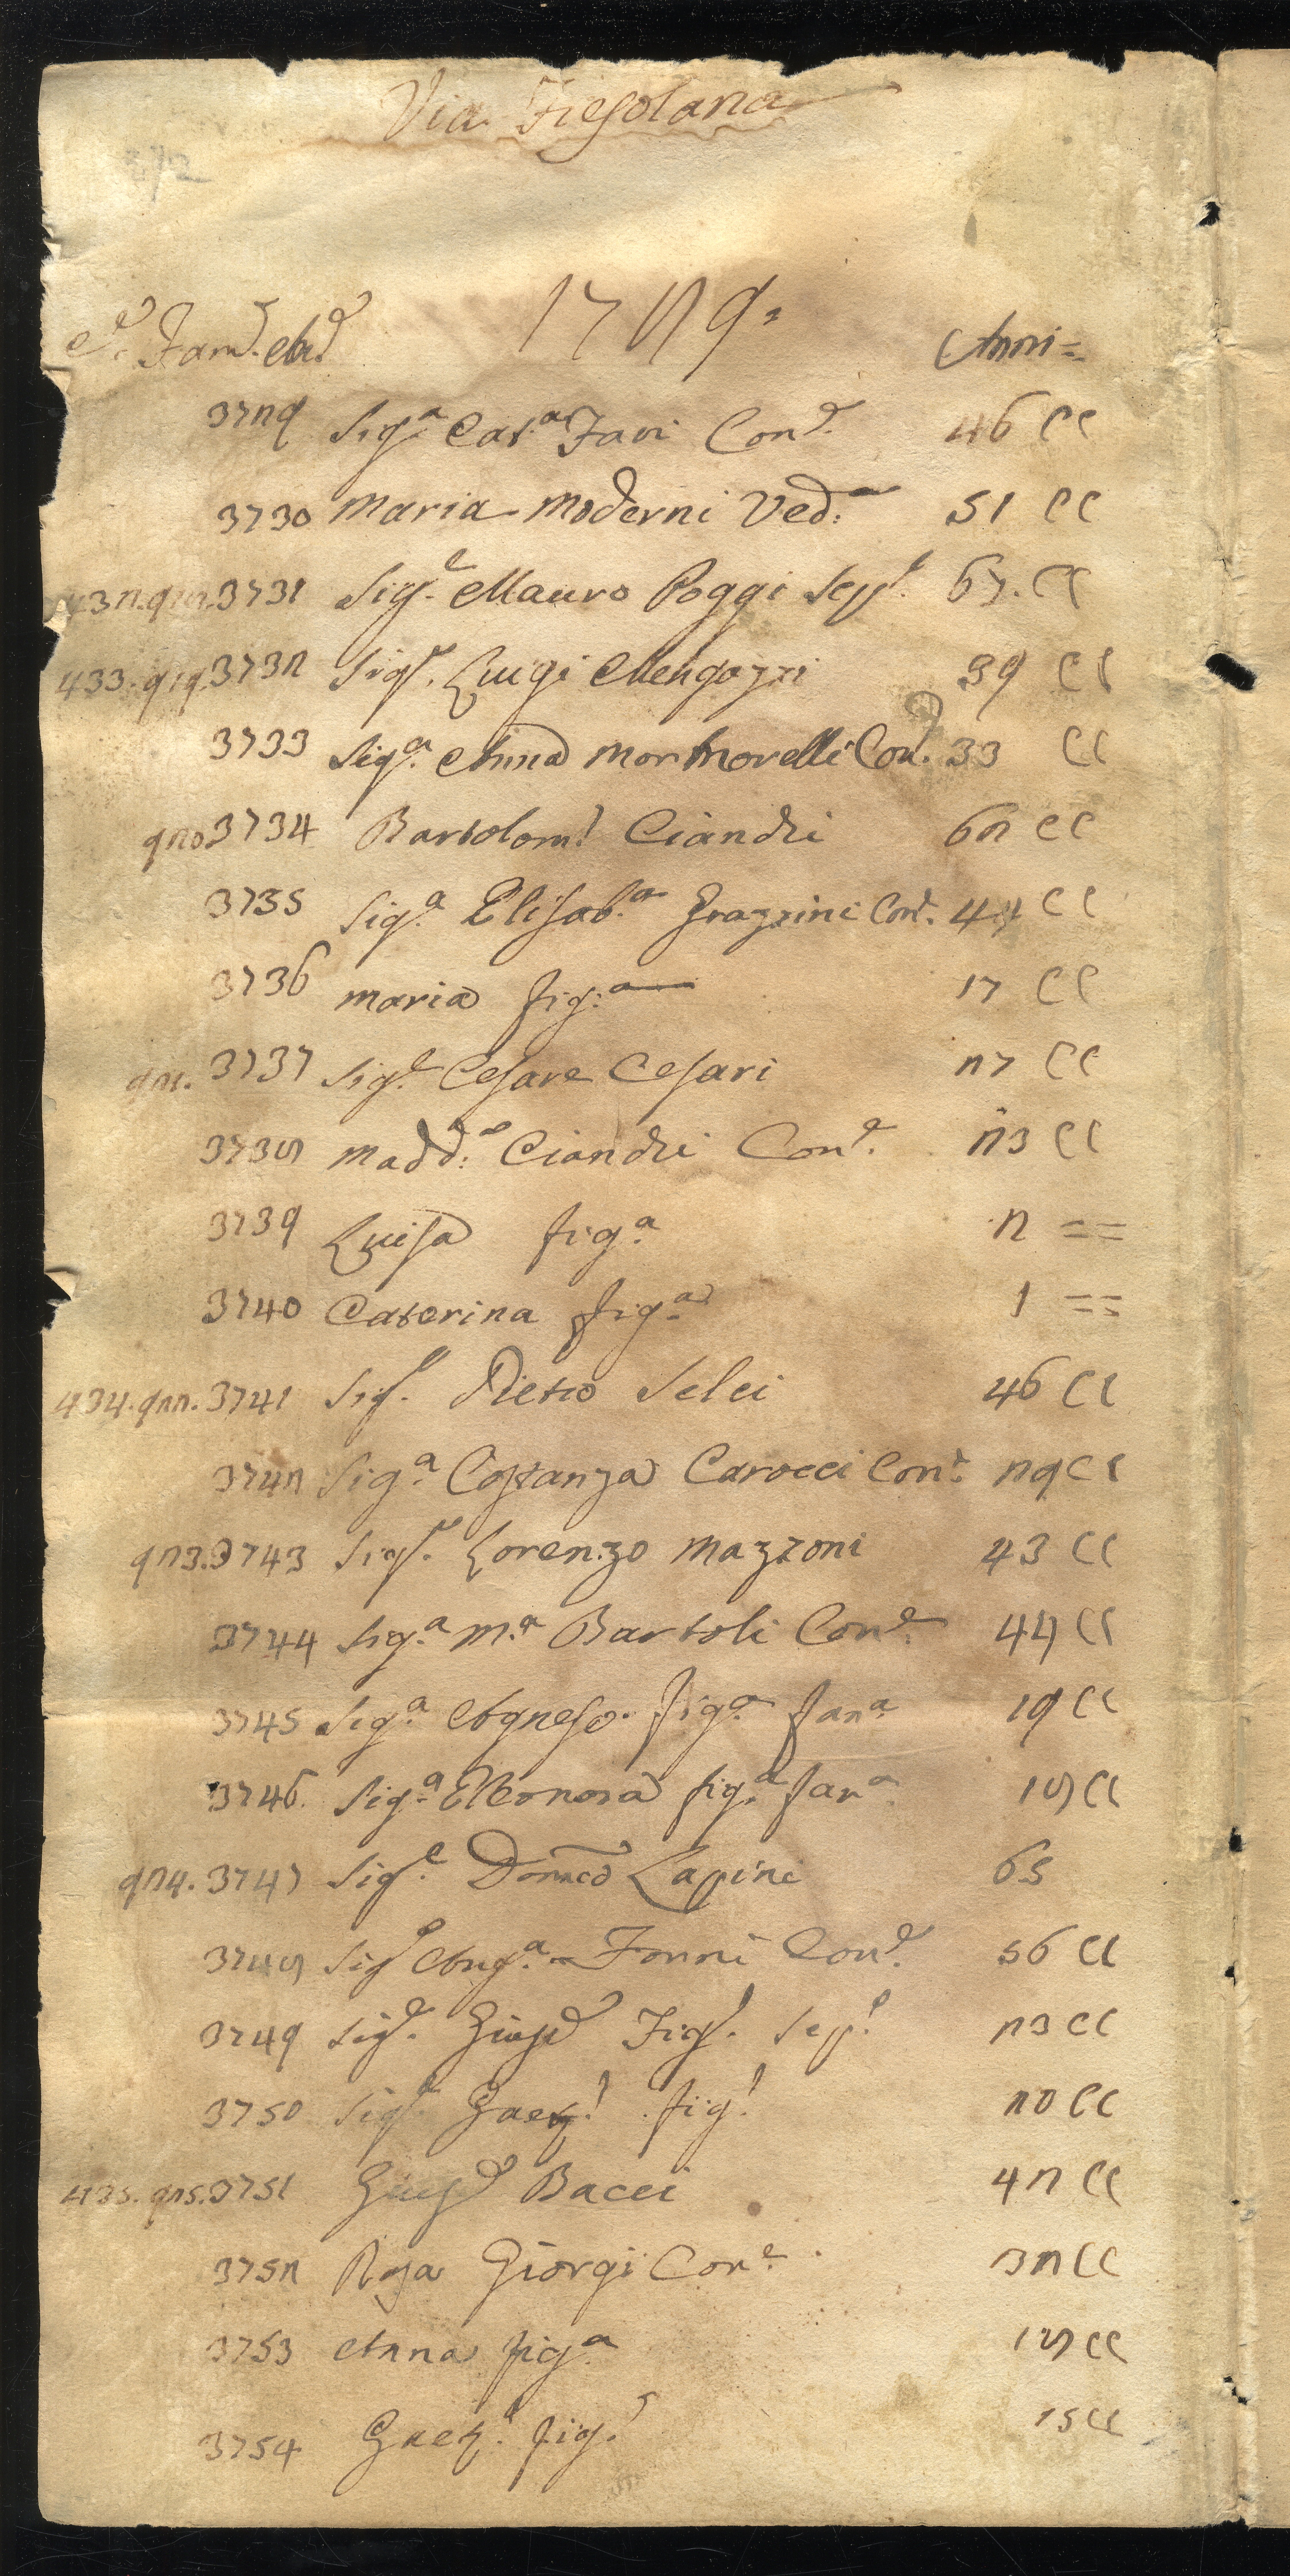 Via Fiesolana
1729
C.e Fam.e An.e Anni =
3729 Sig.a Cat.a Favi Con.e 46 CC
3730 Maria Moderni Ved.a 51 CC
432. 918. 3731 Sig.e Mauro Poggi Sepp.e 67. CC
433. 919. 3732 Sig.e Luigi Mengozzi 39 CC
3733 Sig.a Anna Mormorelli Con.e 33 CC
920 3734 Bartolom.o Cianchi 62 CC
3735 Sig.a Elisab.a Grazzini Con.e 44 CC
3736 Maria fig.a 17 CC
921. 3737 Sig.e Cesare Cesari 27 CC
3738 Madd.a Cianchi Con.e 23 CC
3739 Luisa fig.a 2 ==
3740 Caterina fig.a 1 ==
434. 922. 3741 Sig.e Pietro Selci 46 CC
3742 Sig.a Costanza Carocci Con.e 29 CC
923. 3743 Sig.e Lorenzo Mazzoni 43 CC
3744 Sig.a M.a Bartoli Con.e 48 CC
3745 Sig.a Agnese fig.a fan.a 19 CC
3746. Sig.a Eleonora fig.a fan.a 18 CC
924. 3747 Sig.e Dom.co Lapini 65
3748 Sig.a Ang.a Fonni Con.e 56 CC
3749 Sig.e Giuse.e Fig.o Sep.e 23 CC
3750 Sig.e Gaet.o fig.o 20 CC
435. 925. 3751 Giuse.e Bacci 42 CC
3752 Rosa Giorgi Con.e 32 CC
3753 Anna fig.a 18 CC
3754 Gaet.o fig.o 15 CC